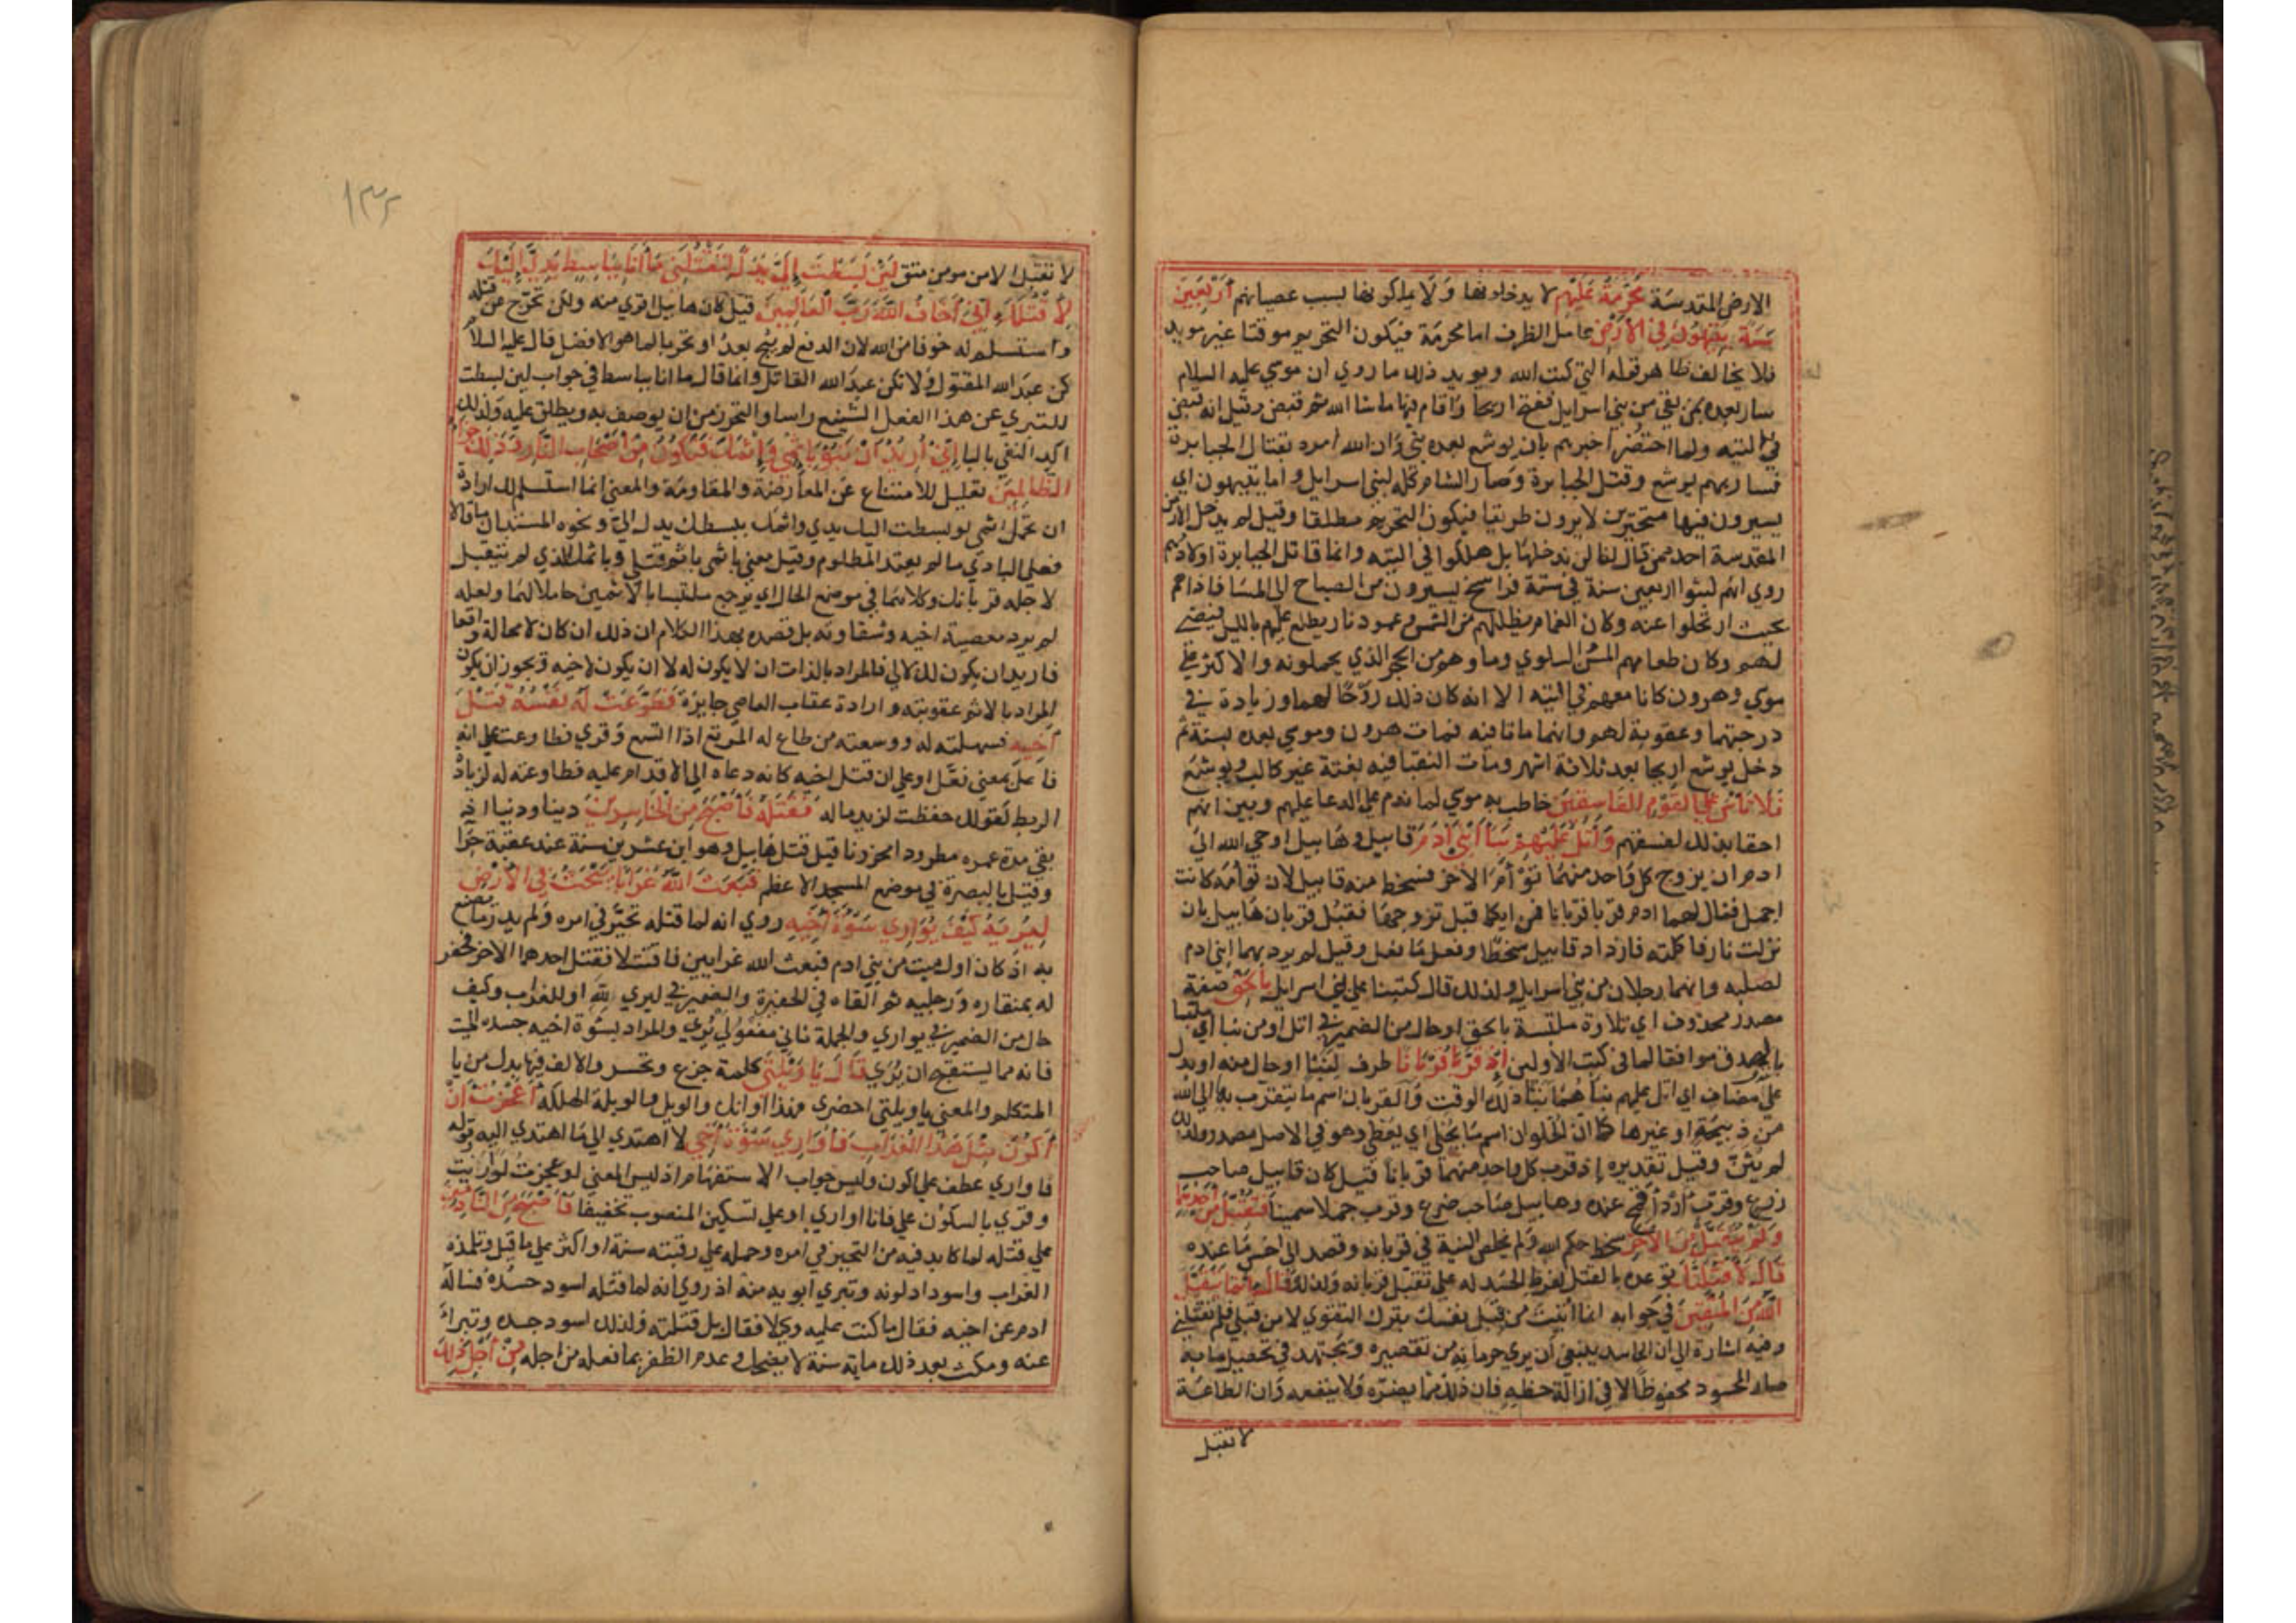 الارض المقدسة مُحَرَّمَةٌ عَلَيْهِمْ لا يدخلونها وَلَا يملكونها بسبب عصيانهم أَرْبَعِينَ
سَنَةً يَتِيهُونَ فِي الْأَرْضِ عامل الظرف اما محرمة فيكون التحريم موقتا غير موبد
فلا يخالف ظاهر قوله التي كتب الله ويويد ذلك ما روي ان موسي عليه السلام
سار بعده بمن بقي من بني اسرايل ففتح اريحا وَاقام بها ما شا الله ثم قبض وقيل انه قبض
في التيه ولما احتضر اخبرهم بان يوشع بعده نبي وَان الله امره بقتال الجبابرة
فسار بهم يوشع وقتل الجبابرة وَصار الشام كله لبني اسرايل واما يتيهون اي
يسيرون فيها متحيّرين لا يرون طريقا فيكون التحريم مطلقا وقيل لم يدخل الارض
المقدسة احد ممن قال انا لن ندخلها بل هلكوا في التيه وانما قاتل الجبابرة اولادهم
روي انهم لبثوا اربعين سنة في ستة فراسخ يسيرون من الصباح الى المسا فاذا هم
بحيث ارتحلوا عنه وكان الغمام يظللهم من الشمس وعمود نار يطلع عليهم بالليل فيضي
لهم وكان طعامهم المن السلوي وماوهم من الحجر الذي يحملونه والاكثر على
موسي وهرون كانا معهم في التيه الا انه كان ذلك رَوحًا لهما وزيادة في
درجتهما وعقوبة لهم وانهما ماتا فيه فمات هرون وموسي بعده بسنة ثم
دخل يوشع اريحا بعد ثلاثة اشهر ومَات النقبا فيه بغتة غير كالب ويوشع
فَلَا تَأْسَ عَلَى الْقَوْمِ الْفَاسِقِينَ خاطب به موسي لما ندم علي الدعا عليهم وبين انهم
احقا بذلك لفسقهم وَاتْلُ عَلَيْهِمْ نَبَأَ ابْنَيْ آدَمَ قابيل وهابيل اوحي الله الى
ادم ان يزوج كل وَاحد منهما تؤامَ الاخر فسخط منه قابيل لان توأمه كانت
اجمل فقال لهما ادم قربا قربانا فمن ايكما قبل تزوجها فقبل قربان هَابيل بان
نزلت نار فاكلته فازداد قابيل سخطا وفعل مَا فعل وقيل لم يرد بهما ابني ادم
لصلبه وانهما رجلان من بني اسرايل ولذلك قال كتبنا علي بني اسرايل بِالْحَقِّ صفة
مصدر محذوف اي تلاوة ملتبسة بالحق او حال من الضمير في اتل او من نبا اي ملتبسا
بالصدق موافقا لما في كتب الاولين إِذْ قَرَّبَا قُرْبَانًا ظرف لنبَا او حال منه او بدل
على مضاف اي اتل عليهم نبأهما نبأ ذلك الوقت وَالقربان اسم ما يتقرب به الي الله
من ذبيحة او غيرها كما ان الحلوان اسم ما يحلى اي يعطى وهو في الاصل مصدر ولذلك
لم يثنّ وقيل تقديره إذ قرب كل واحد منهما قربانا قيل كان قابيل صاحب
زرع وقرّب اردأ قمح عنده وهابيل صَاحب ضرع وقرب جملا سمينا فَتُقُبِّلَ مِنْ أَحَدِهِمَا
وَلَمْ يُتَقَبَّلْ مِنَ الْآخَرِ سخط حكم الله وَلم يخلص النية في قربانه وقصد الى اخس مَا عنده
قَالَ لَأَقْتُلَنَّكَ توعده بالقتل لفرط الحسد له على تقبل قربانه ولذلك قَالَ إِنَّمَا يَتَقَبَّلُ
اللَّهُ مِنَ الْمُتَّقِينَ في جوابه انما اُتيت من قبل نفسك بترك التقوي لا من قبلي فلم تقتلني
وفيه اشارة الى ان الحاسد ينبغي أن يري حرمانه من تقصيره ويجتهد في تحصيل ما به
صار المحسود محفوظا لا في ازالة حظه فان ذلك مما يضره وَلا ينفعه وَان الطاعة
لا تقبل
١٣٢
لا تقبل الا من مومن متق لَئِنْ بَسَطْتَ إِلَيَّ يَدَكَ لِتَقْتُلَنِي مَا أَنَا بِبَاسِطٍ يَدِيَ إِلَيْكَ
لِأَقْتُلَكَ إِنِّي أَخَافُ اللَّهَ رَبَّ الْعَالَمِينَ قيل كان هابيل اقوي منه ولكن تحرّج عن قتله
واستسلم له خوفا من الله لان الدفع لم يبح بعدُ او تحريا لما هو الافضل قال عليه السلام
كن عبدَ الله المقتول وَلا تكن عبدَ الله القاتل وانما قال ما انا بباسط في جواب لين بسطت
للتبري عن هذا الفعل الشنيع راسا والتحرز من ان يوصف به ويطلق عليه وَلذلك
اكد النفي بالبا إِنِّي أُرِيدُ أَنْ تَبُوءَ بِإِثْمِي وَإِثْمِكَ فَتَكُونَ مِنْ أَصْحَابِ النَّارِ وَذَلِكَ جَزَاءُ
الظَّالِمِينَ تعليل للامتناع عن المعارضة والمقاومة والمعنى انما استسلم لك ارادة
ان تحمل اثمي لو بسطت اليك يدي واثمك ببسطك يدك الي ونحوه المستبان ما قالا
فعلي البادي ما لم يعتد المظلوم وقيل معنى باثمي باثم قتلي وباثمك الذي لم يتقبل
لاجله قربانك وكلاهما في موضع الحال اي ترجع ملتبسا بالاثمين حاملا لهما ولعله
لم يرد معصية اخيه وشقاوته بل قصده بهذا الكلام ان ذلك ان كان لا محالة واقعا
فاريد ان يكون لك لا لي فالمراد بالذات ان لا يكون له لا ان يكون لاخيه ويجوز ان يكون
المراد بالاثم عقوبته وارادة عقاب العاصي جايزة فَطَوَّعَتْ لَهُ نَفْسُهُ قَتْلَ
أَخِيهِ فسهلته له ووسعته من طاع له المرتع اذا اتسع وَقري فطاوعت على انه
فاعَلَ بمعنى فعّل او على ان قتل اخيه كانه دعاه الى الاقدام عليه فطاوعته له لزيادة
الربط كقولك حفظت لزيد ماله فَقَتَلَهُ فَأَصْبَحَ مِنَ الْخَاسِرِينَ دينا ودنيا اذ
بقي مدة عمره مطرودا محزونا قيل قتل هابيل وهو ابن عشرين سنة عند عقبة حرا
وقيل بالبصرة في موضع المسجد الاعظم فَبَعَثَ اللَّهُ غُرَابًا يَبْحَثُ فِي الْأَرْضِ
لِيُرِيَهُ كَيْفَ يُوَارِي سَوْأَةَ أَخِيهِ روي انه لما قتله تحيّر في امره وَلم يدر ما يصنع
به اذ كان اول ميت من بني ادم فبعث الله غرابين فاقتتلا فقتل احدهما الاخر فحفر
له بمنقاره وَرجليه ثم القاه في الحفيرة والضمير في ليري لله او للغراب وكيف
حال من الضمير في يواري والجملة ثاني مفعولي يُري والمراد بسوءة اخيه جسده الميت
فانه مما يستقبح ان يُرَي قَالَ يَا وَيْلَتَى كلمة جزع وتحسر والالف فيها بدل من يا
المتكلم والمعنى يا ويلتي احضري فهذا اوانك والويل والويلة الهلكة أَعَجَزْتُ أَنْ
أَكُونَ مِثْلَ هَذَا الْغُرَابِ فَأُوَارِيَ سَوْأَةَ أَخِي لا اهتدي الى مَا اهتدي اليه وقوله
فاواري عطف على اكون وليس جواب الاستفهام اذ ليس المعنى لو عجزت لواريت
وقري بالسكون على فانا اواري او علي تسكين المنصوب تخفيفا فَأَصْبَحَ مِنَ النَّادِمِينَ
على قتله لما كابد فيه من التحير في امره وحمله على رقبته سنة او اكثر علي ما قيل وتلمذه
الغراب واسوداد لونه وتبري ابويه منه اذ روي انه لما قتله اسود جسَدُهُ فساله
ادم عن اخيه فقال ما كنت عليه وكيلا فقال بل قتلته ولذلك اسود جسده وتبرا
عنه ومكث بعد ذلك ماية سنة لا يضحك وعدم الظفر بما فعله من اجله مِنْ أَجْلِ ذَلِكَ